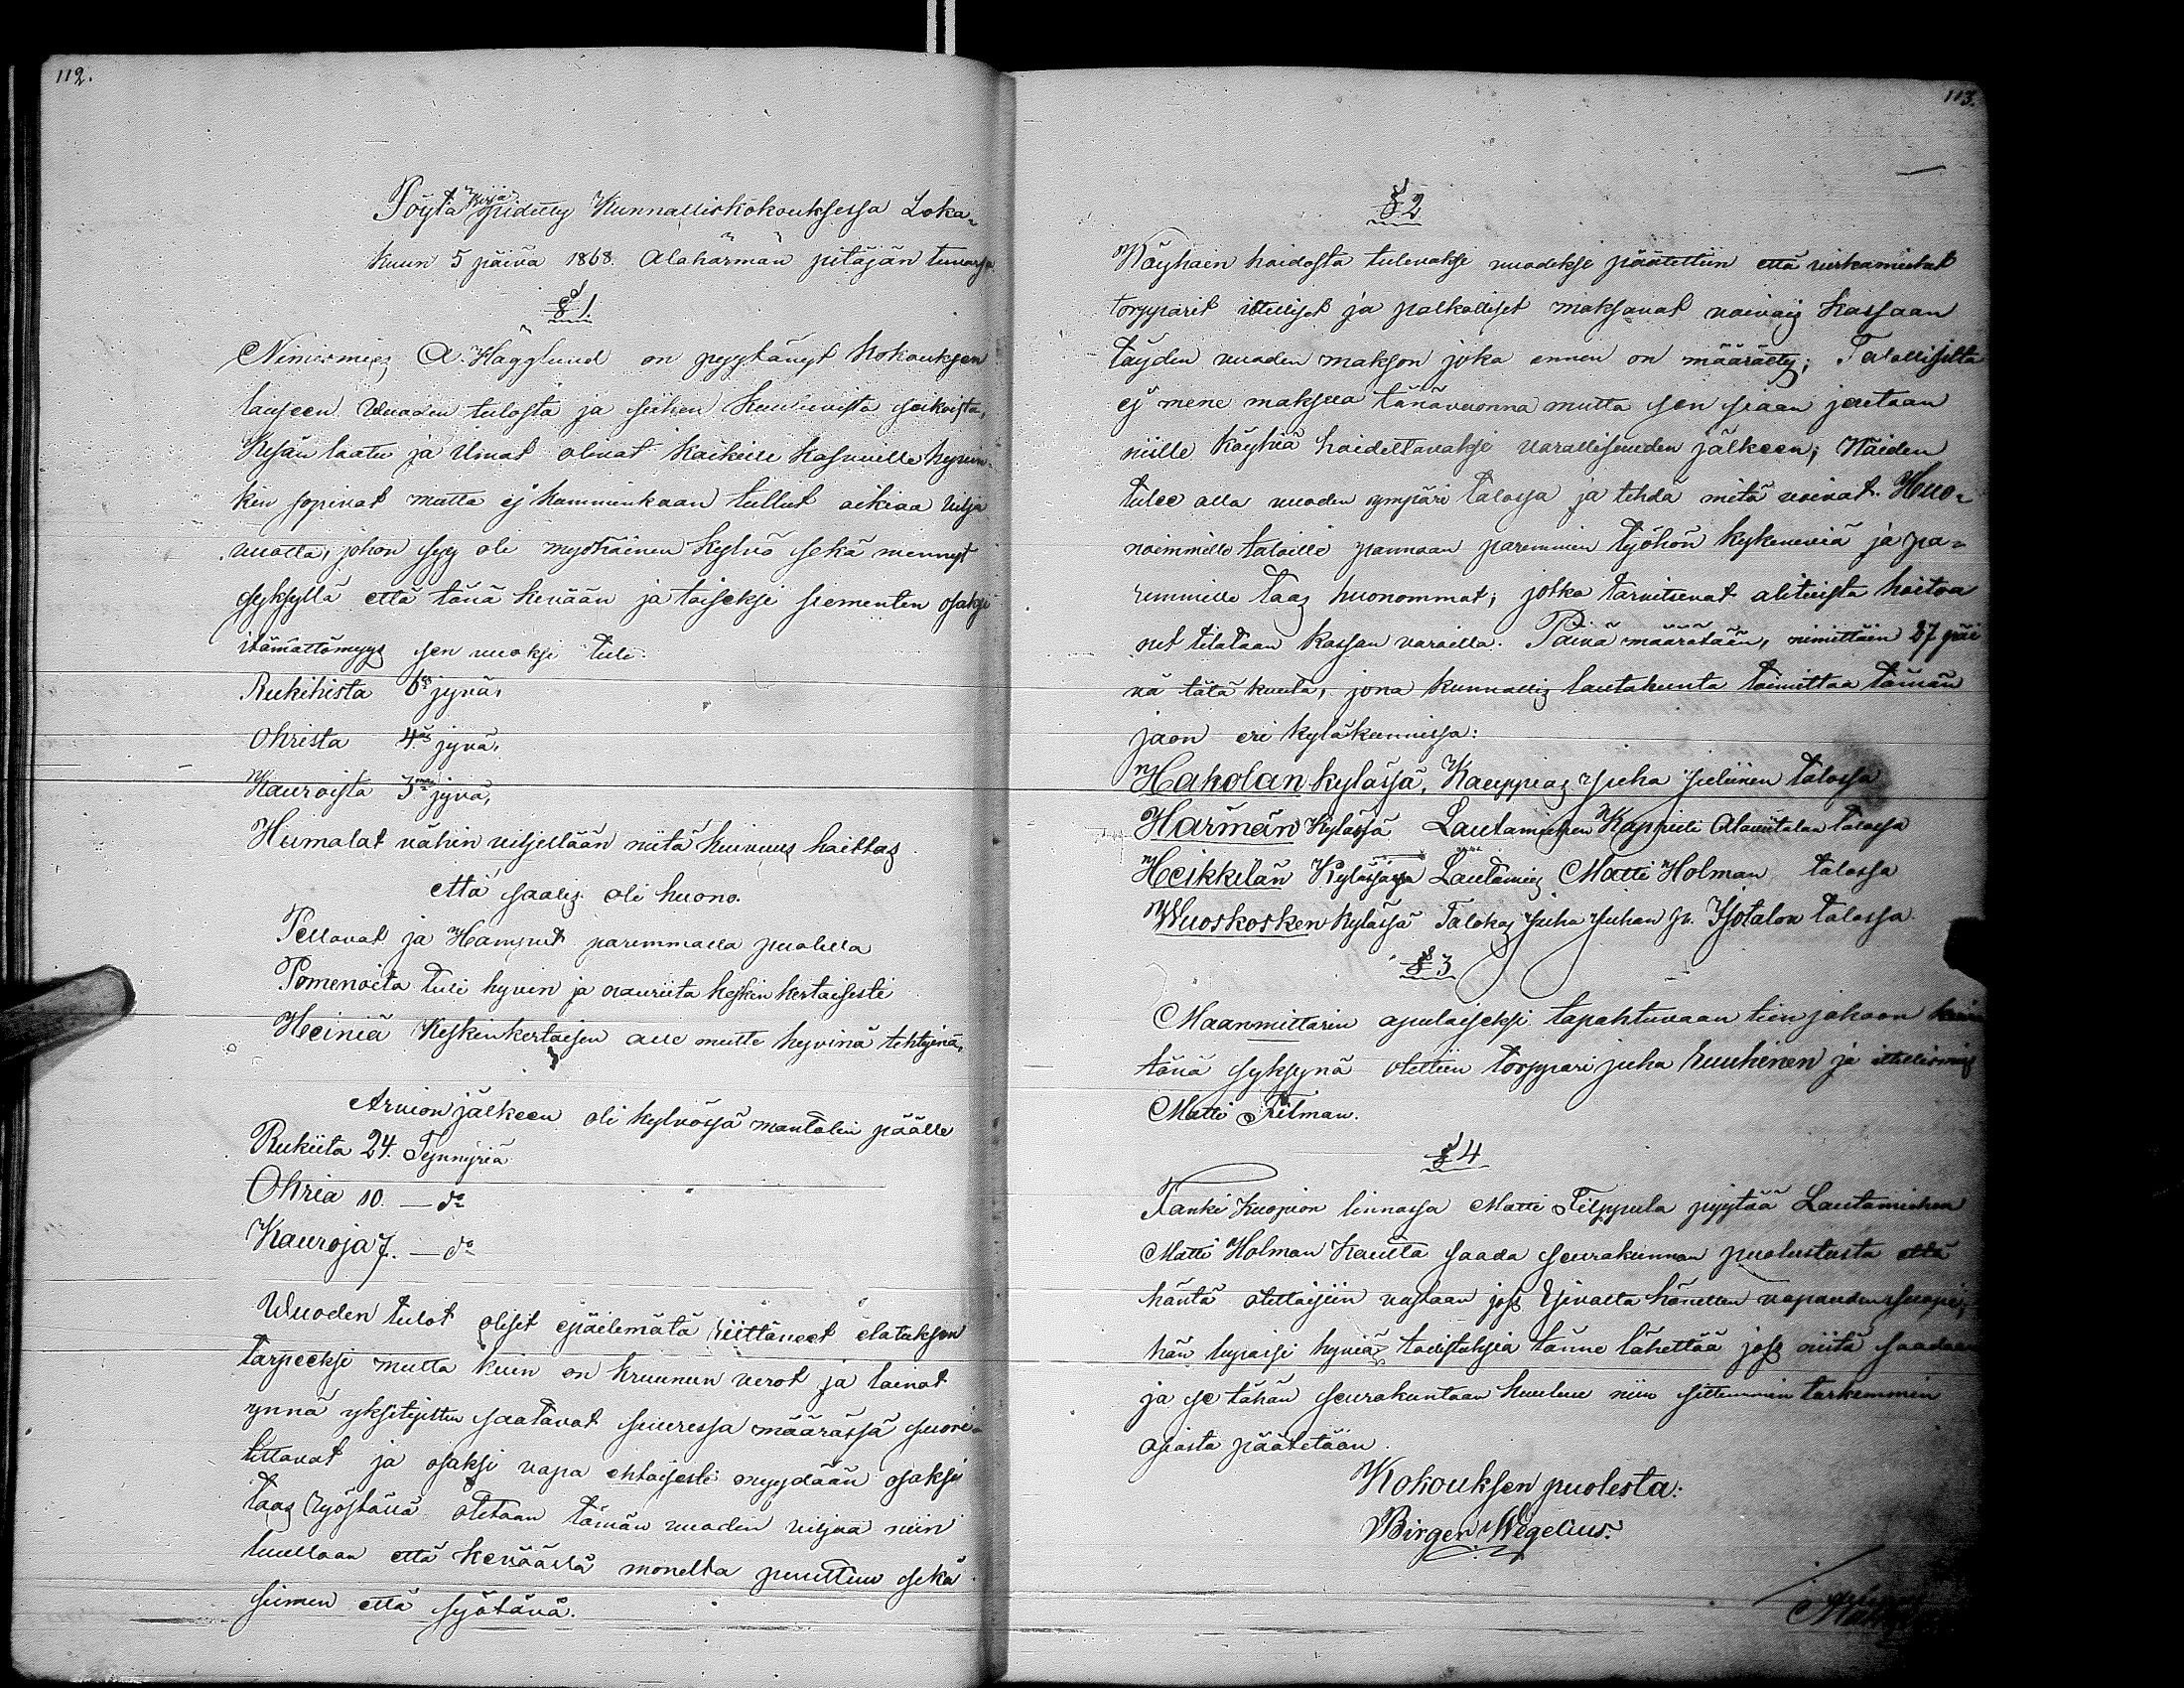 112.
Pöytäkirja pidetty Kunnalliskokouksessa Loka-
kuun 5 päivä 1868. Alahärmän pitäjän tuvassa
§ 1.
Nimismies A. Hägglund on pyytänyt kokouksen
lauseen Wuoden tulosta ja siihen kuuluvista seikoista,
Kesän laatu ja ilmat olivat kaikille kasvuille hyvin-
kin sopivat mutta ej kumminkaan tullut oikiaa vilja
vuotta, johon syy oli myöhäinen kylvö sekä mennyt
syksyllä että tänä kevään ja toiseksi siementen osaksi
itämättömyys sen vuoksi tuli.
Rukihista 6:s jyvä,
Ohrista 4:äs jyvä,
Kauroista 3:mas jyvä,
Humalat vähin viljellään niitä kuivuus haittas
että saalis oli huono.
Pellavat ja Hamput paremmalla puolella
Pomenoita tuli hyvin ja nauriita keskinkertaisesti
Heiniä Keskinkertaisen alle mutta hyvinä tehtyinä,
Arvion jälkeen oli kylvössä mantalin päälle
Rukiita 24. Tynnyriä
Ohria 10. — d:o
Kauroja 7. — d:o
Wuoden tulot olisit epäilemätä riittäneet elatuksen
tarpeeksi mutta kuin on kruunun verot ja lainat
ynnä yksityisten saatavat suuressa määrässä suori-
tettavat ja osaksi vapa ehtoisesti myydään osaksi
taas ryöstönä otetaan tämän vuoden viljaa niin
luullaan että keväällä monelta puuttuu sekä
siemen että syötävä.
113.
§ 2
Köyhäin hoidosta tulevaksi vuodeksi päätettiin että virkamiehet
torpparit itselliset ja palkolliset maksavat vaivais kassaan
täyden vuoden makson joka ennen on määrätty; Talollisilta
ej mene maksua tänävuonna mutta sen siaan jaetaan
niille köyhiä hoidettavaksi varallisuuden jälkeen; Näiden
tulee olla vuoden ympäri talossa ja tehdä mitä voivat. Huo-
noimmille taloille pannaan paremmin työhön kykeneviä ja pa-
remmille taas huonommat; jotka tarvitsevat alituista hoitoa
net tilataan kassan varoilla. Päivä määrätään, nimittäin 27 päi
vä tätä kuuta, jona kunnallis lautakunta toimittaa tämän
jaon eri kyläkunnissa:
Hakolan kylässä, Kauppias Juha talossa
Härmän Kylässä Lautamiehen Kappeli Alaviitalan talossa
Heikkilän Kylässä Lautamies Matti Holman talossa
Wuoskosken kylässä Talokas Juha Juhan p. Isotalon talossa
§ 3
Maanmittarin apulaiseksi tapahtuvaan tien jakoon
tänä syksynä otettiin torppari juha Ruuhinen ja itsellismies
Matti Frilman.
§ 4
Fanki Kuopion linnassa Matti Filppula pyytää Lautamiehen
Matti Holman kautta saada seurakunnan puolustusta että
häntä otettaisiin vastaan joss Esivalta hänellen vapauden suopi;
hän lupaisi hyviä todistuksia tänne lähettää joss niitä saadaan
ja se tähän seurakuntaan kuuluu niin sittemmin tarkemmin
asiasta päätetään.
Kokouksen puolesta:
Birger Wegelius.